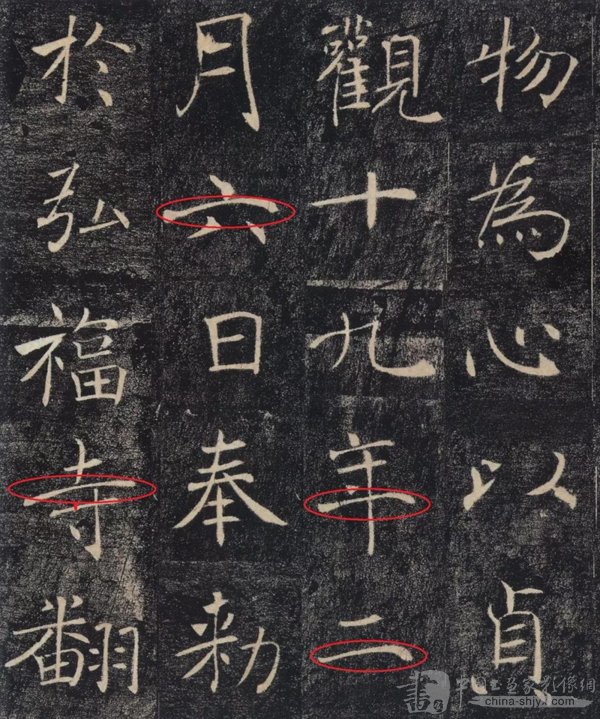 物為心以貞
觀十九年二
月六日奉勅
於弘福寺翻
china-shjyx.com